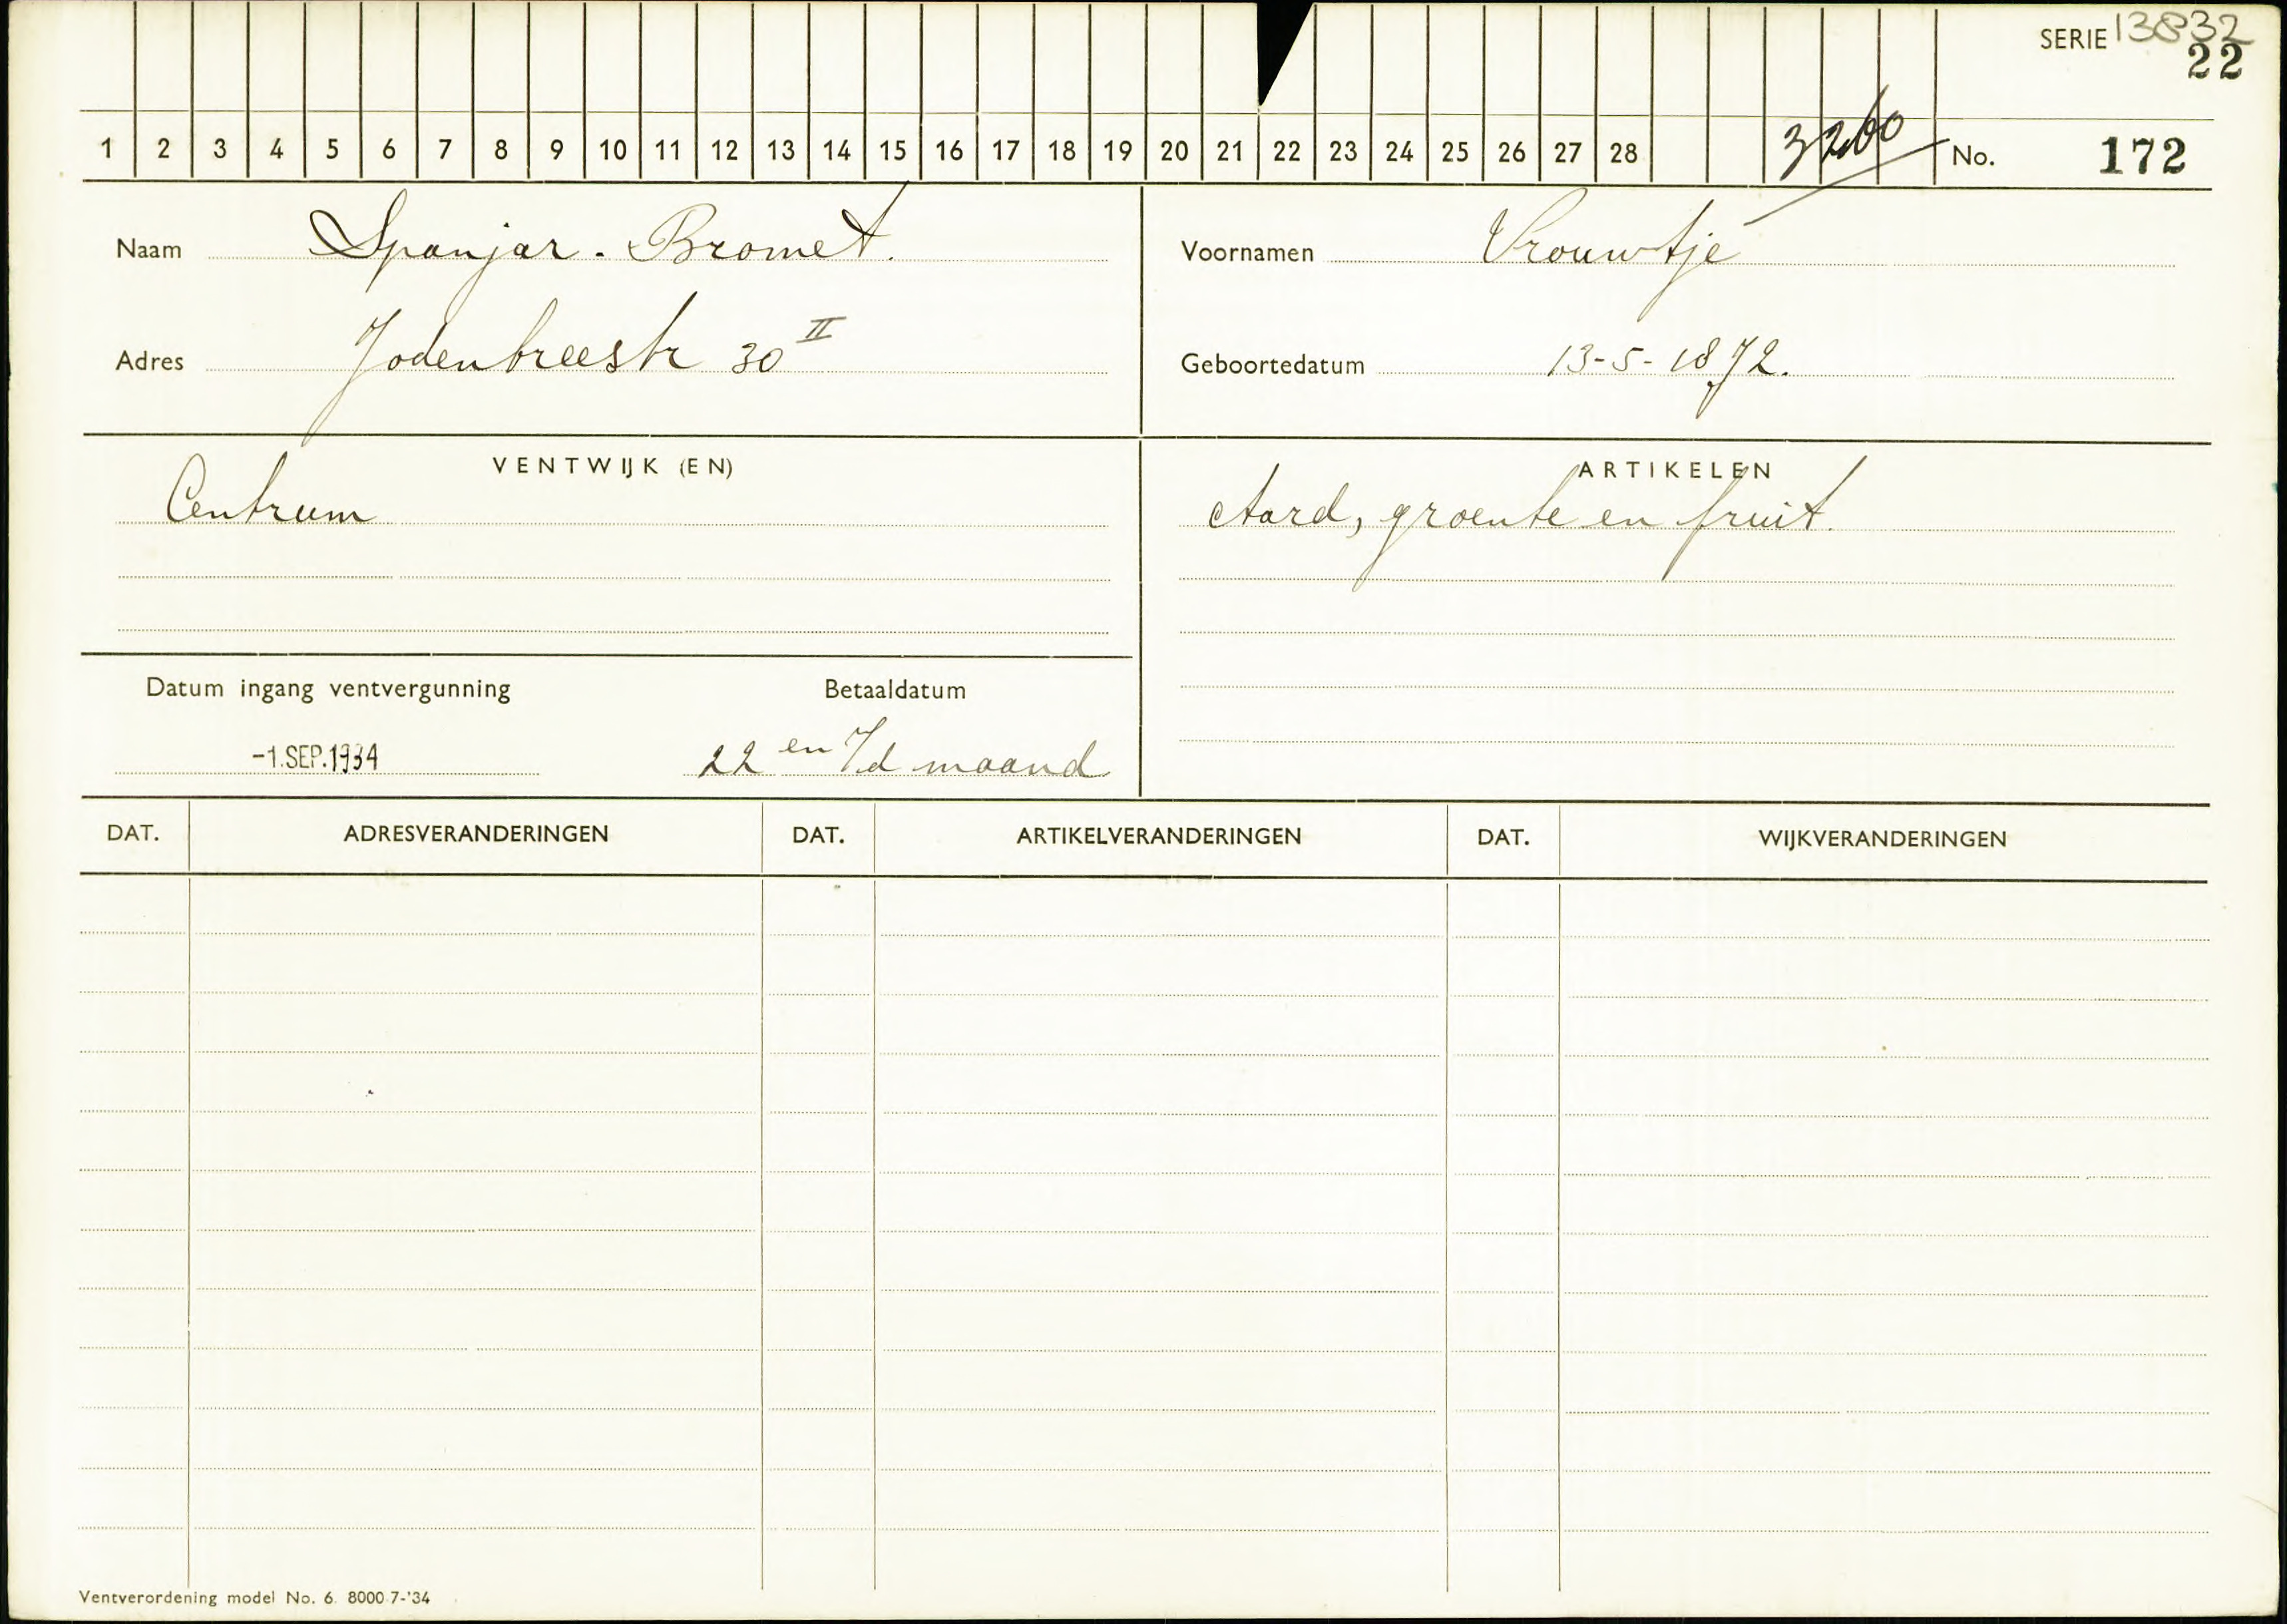 SERIE 13832
22
1 2 3 4 5 6 7 8 9 10 11 12 13 14 15 16 17 18 19 20 21 22 23 24 25 26 27 28 3260 No. 172
Naam Spanjar - Bromet.
Voornamen Vrouwtje
Adres Jodenbreestr 30 II
Geboortedatum 13-5-1872.
VENTWIJK (EN)
Centrum
ARTIKELEN
Aard, groente en fruit.
Datum ingang ventvergunning Betaaldatum
-1.SEP.1934 22 en v/d maand
DAT. ADRESVERANDERINGEN DAT. ARTIKELVERANDERINGEN DAT. WIJKVERANDERINGEN
Ventverordening model No. 6. 8000-7-'34